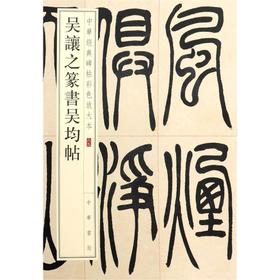 風煙
俱淨
中華經典碑帖彩色放大本
吳讓之篆書吳均帖
中華書局